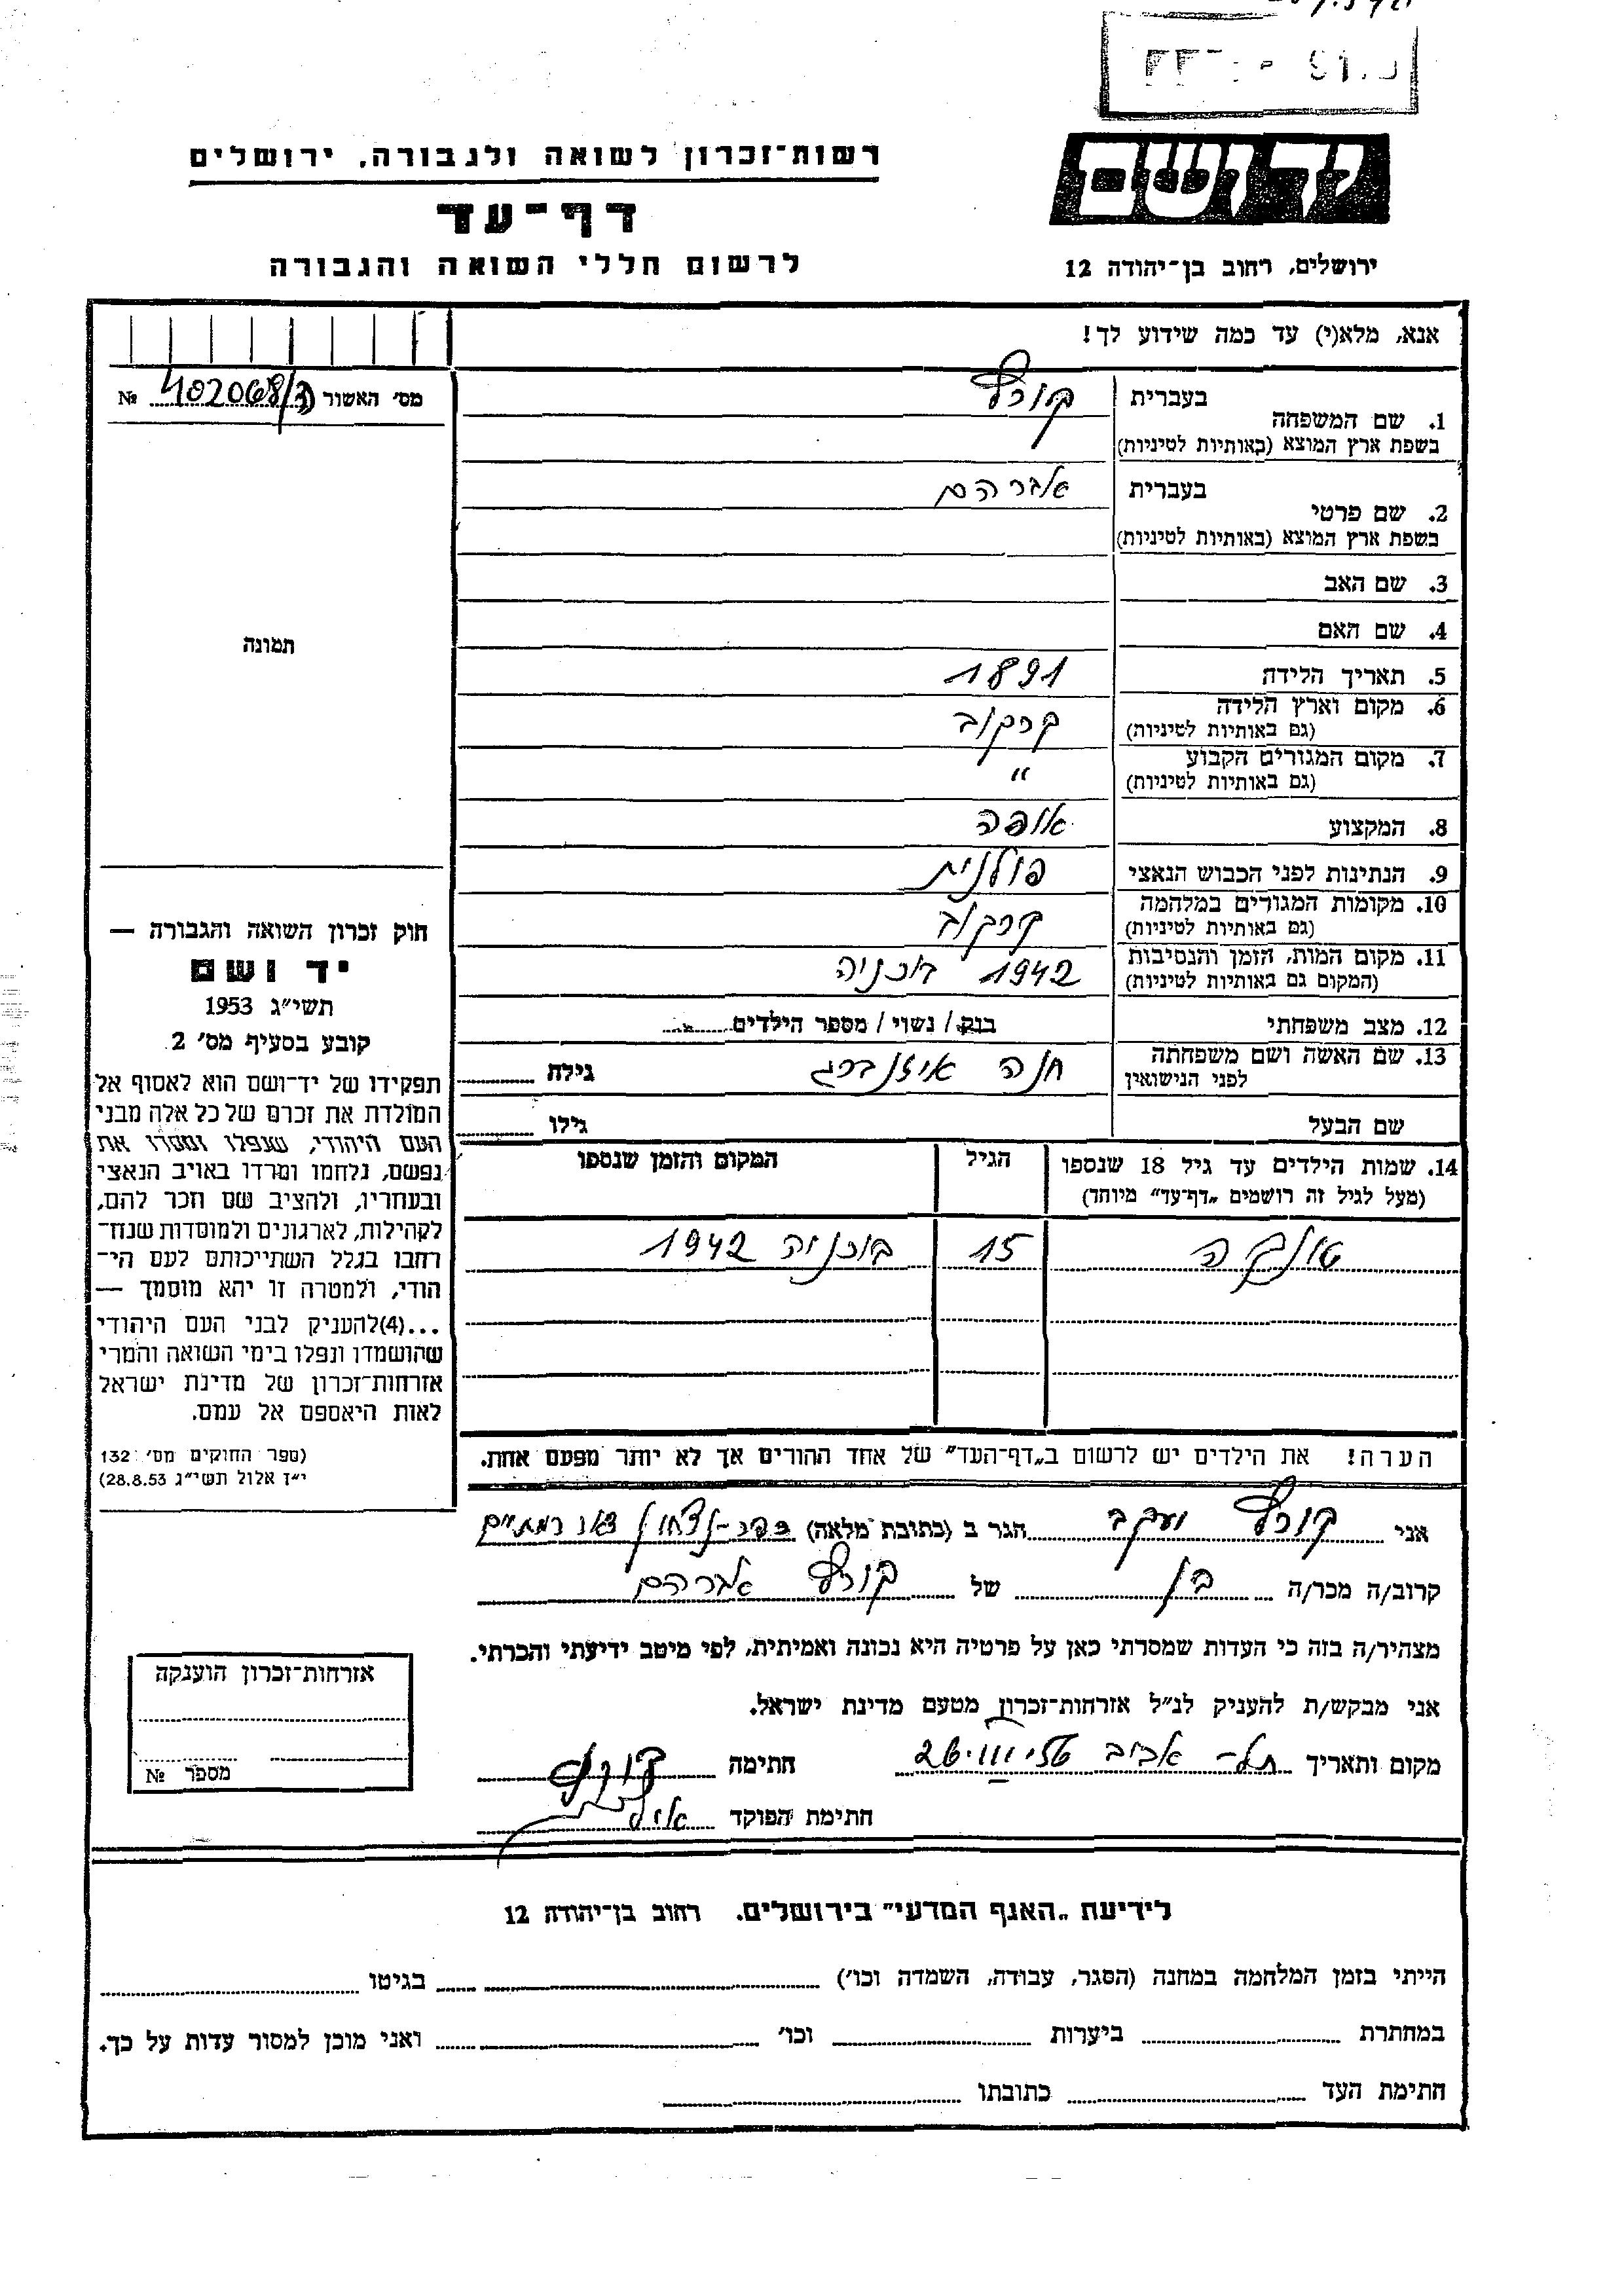 רשות־זכרון לשואה ולגבורה, ירושלים
דף־עד
לרשום חללי השואה והגבורה
יד ושם
ירושלים, רחוב בן־יהודה 12
אנא, מלא(י) עד כמה שידוע לך!
מס׳ האשור 402068/ № 
תמונה
1. שם המשפחה
בעברית קורץ
בשפת ארץ המוצא (באותיות לטיניות)
2. שם פרטי
בעברית אברהם
בשפת ארץ המוצא (באותיות לטיניות)
3. שם האב
4. שם האם
5. תאריך הלידה 1891
6. מקום וארץ הלידה קרקוב
(גם באותיות לטיניות)
7. מקום המגורים הקבוע "
(גם באותיות לטיניות)
8. המקצוע אופה
9. הנתינות לפני הכבוש הנאצי פולנית
10. מקומות המגורים במלחמה קרקוב
(גם באותיות לטיניות)
11. מקום המות, הזמן והנסיבות 1942 בוכניה
(המקום גם באותיות לטיניות)
12. מצב משפחתי בוק / נשוי / מספר הילדים
13. שם האשה ושם משפחתה חנה איזנברג גילה
לפני הנישואין
שם הבעל גילו
14. שמות הילדים עד גיל 18 שנספו הגיל המקום והזמן שנספו
(מעל לגיל זה רושמים „דף־עד״ מיוחד)
טונקה 15 בוכניה 1942
הערה! את הילדים יש לרשום ב„דף־העד״ של אחד ההורים אך לא יותר מפעם אחת.
חוק זכרון השואה והגבורה —
יד ושם
תשי״ג 1953
קובע בסעיף מס׳ 2
תפקידו של יד־ושם הוא לאסוף אל
המולדת את זכרם של כל אלה מבני
העם היהודי, שנפלו ומסרו את
נפשם, נלחמו ומרדו באויב הנאצי
ובעוזריו, ולהציב שם וזכר להם,
לקהילות, לארגונים ולמוסדות שנח־
רבו בגלל השתייכותם לעם הי־
הודי, ולמטרה זו יהא מוסמך —
...(4)להעניק לבני העם היהודי
שהושמדו ונפלו בימי השואה והמרי
אזרחות־זכרון של מדינת ישראל
לאות היאספם אל עמם.
(ספר החוקים מס׳ 132
י״ז אלול תשי״ג 28.8.53)
אני קורץ יעקב הגר ב (כתובת מלאה) רמתיים
קרוב/ה מכר/ה בן של קורץ אברהם
מצהיר/ה בזה כי העדות שמסרתי כאן על פרטיה היא נכונה ואמיתית, לפי מיטב ידיעתי והכרתי.
אני מבקש/ת להעניק לנ״ל אזרחות־זכרון מטעם מדינת ישראל.
מקום ותאריך תל-אביב חתימה קורץ
חתימת הפוקד
אזרחות־זכרון הוענקה
מספר №
לידיעת „האגף המדעי״ בירושלים. רחוב בן־יהודה 12
הייתי בזמן המלחמה במחנה (הסגר, עבודה, השמדה וכו׳) בגיטו
במחתרת ביערות וכו׳ ואני מוכן למסור עדות על כך.
חתימת העד כתובתו